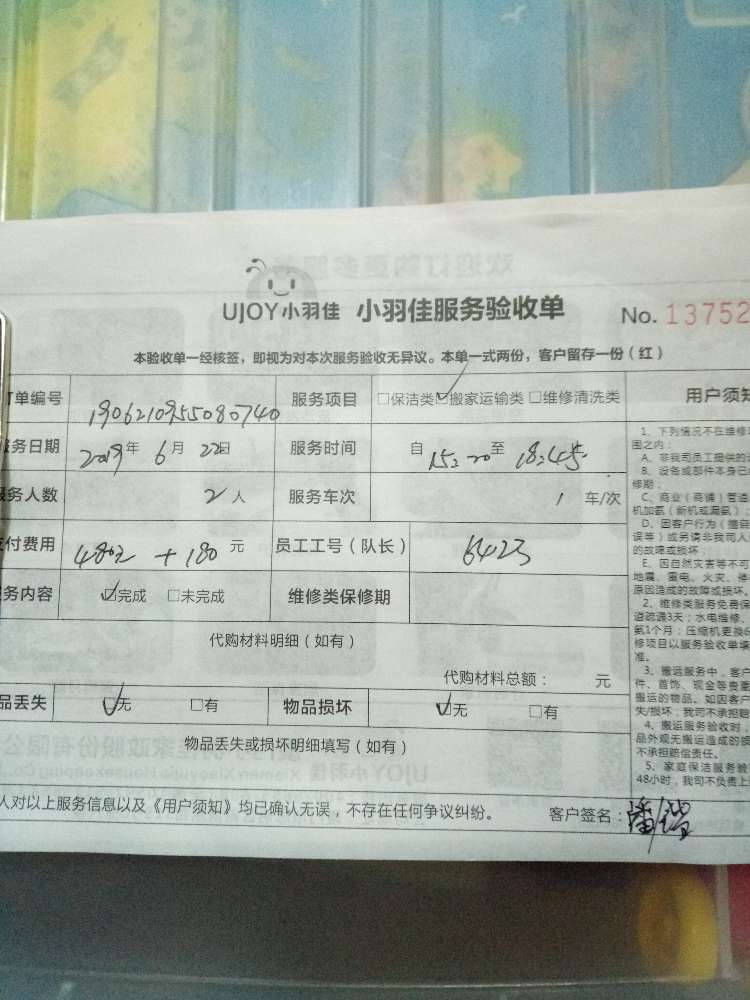 UJOY小羽佳 小羽佳服务验收单 No. 13752
本验收单一经核签，即视为对本次服务验收无异议。本单一式两份，客户留存一份（红）
订单编号 1906210955080740 服务项目 □保洁类 ☑搬家运输类 □维修清洗类 用户须知
服务日期 2019年6月22日 服务时间 自15:20至18:45
服务人数 2人 服务车次 1 车/次
支付费用 480元 +180 元 员工工号（队长） 6423
服务内容 ☑完成 □未完成 维修类保修期
代购材料明细（如有）
代购材料总额： 元
品丢失 ☑无 □有 物品损坏 ☑无 □有
物品丢失或损坏明细填写（如有）
人对以上服务信息以及《用户须知》均已确认无误，不存在任何争议纠纷。 客户签名：潘
1、下列情况不在维修
围之内：
A、非我司员工提供的
B、设备或部件本身已
修期；
C、商业（商铺）管道
机加氨（新机或漏氨）；
D、因客户行为（擅自
误等）或另请非我司人
的故障或损坏；
E、因自然灾害等不可
地震、雷电、火灾、停
原因造成的故障或损坏。
2、维修类服务免费保
道疏通3天；水电维修、
氨1个月；压缩机更换6
修项目以服务验收单填
准。
3、搬运服务中，客户
件、首饰、现金等贵重
搬运的物品。如因客户
失/损坏，我司不承担赔
4、搬运服务验收时，
品外观无搬运造成的损
不承担赔偿责任。
5、家庭保洁服务验
48小时，我司不负责上